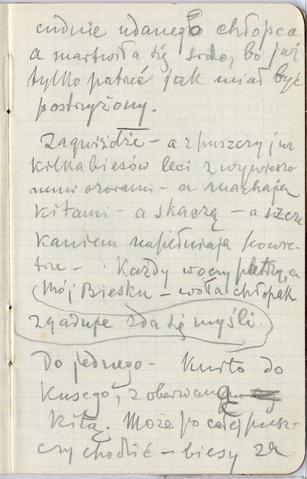 cudnie udanego chłopca
a martwiła się srodze, bo już
tylko patrzeć jak miał być
postrzyżony.
Zagwiżdże – a z puszczy już
kilka biesów leci z wywieszo-
nemi ozorami – a machają
kitami – a skaczą – a szcze
kaniem napełniają powie-
trze – Każdy w oczy patrzy, a
Mój Biesku – woła chłopak
zgaduje zda się myśli.
Do jednego – Kusito do
kusego, z oberwaną
kitą. Może po całej pusz-
czy chodzić – biesy za